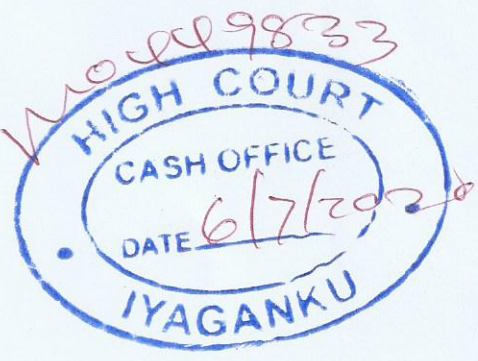 HIGH COURT
CASH OFFICE
DATE 6/7/2020
IYAGANKU